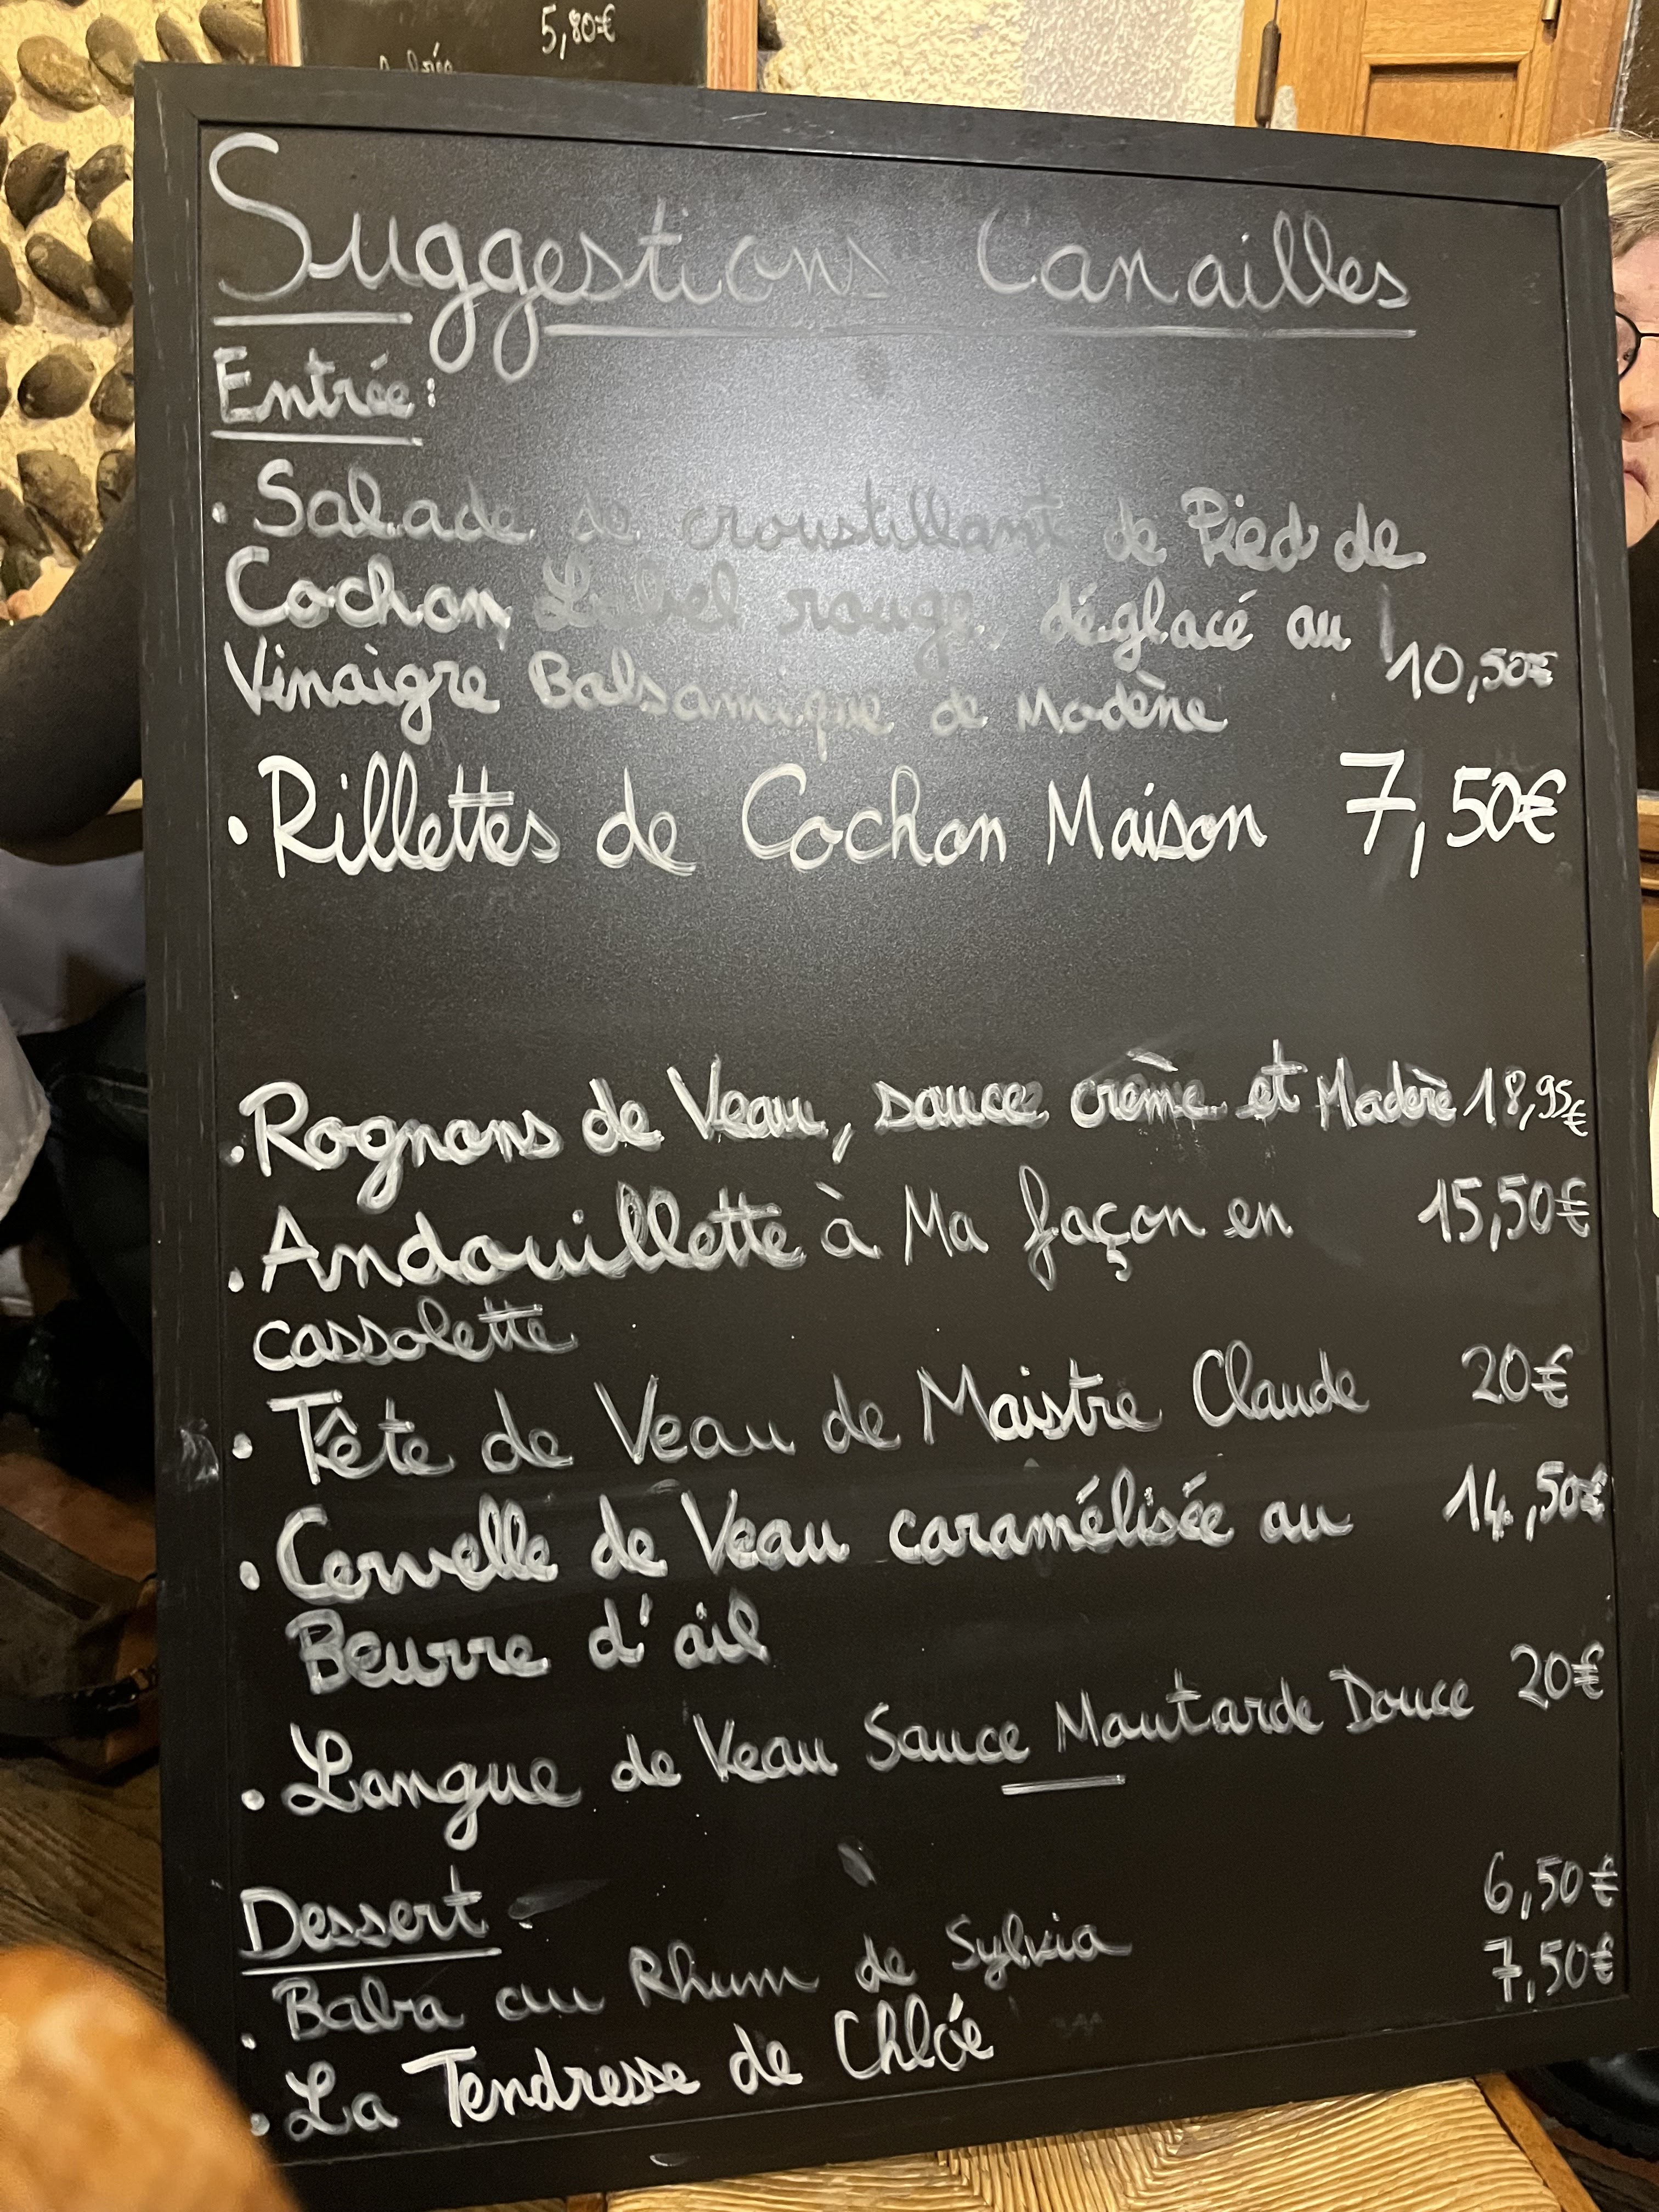 5,80€
Suggestions Canailles
Entrée:
• Salade de croustillant de Pied de
Cochon Label rouge, déglacé au
Vinaigre Balsamique de Modène 10,50€
• Rillettes de Cochon Maison 7,50€
• Rognons de Veau, sauce crème et Madère 18,95€
• Andouillette à Ma façon en 15,50€
cassolette
• Tête de Veau de Maistre Claude 20€
• Cervelle de Veau caramélisée au 14,50€
Beurre d'ail
• Langue de Veau Sauce Moutarde Douce 20€
Dessert
• Baba au Rhum de Sylvia 6,50€
• La Tendresse de Chloé 7,50€